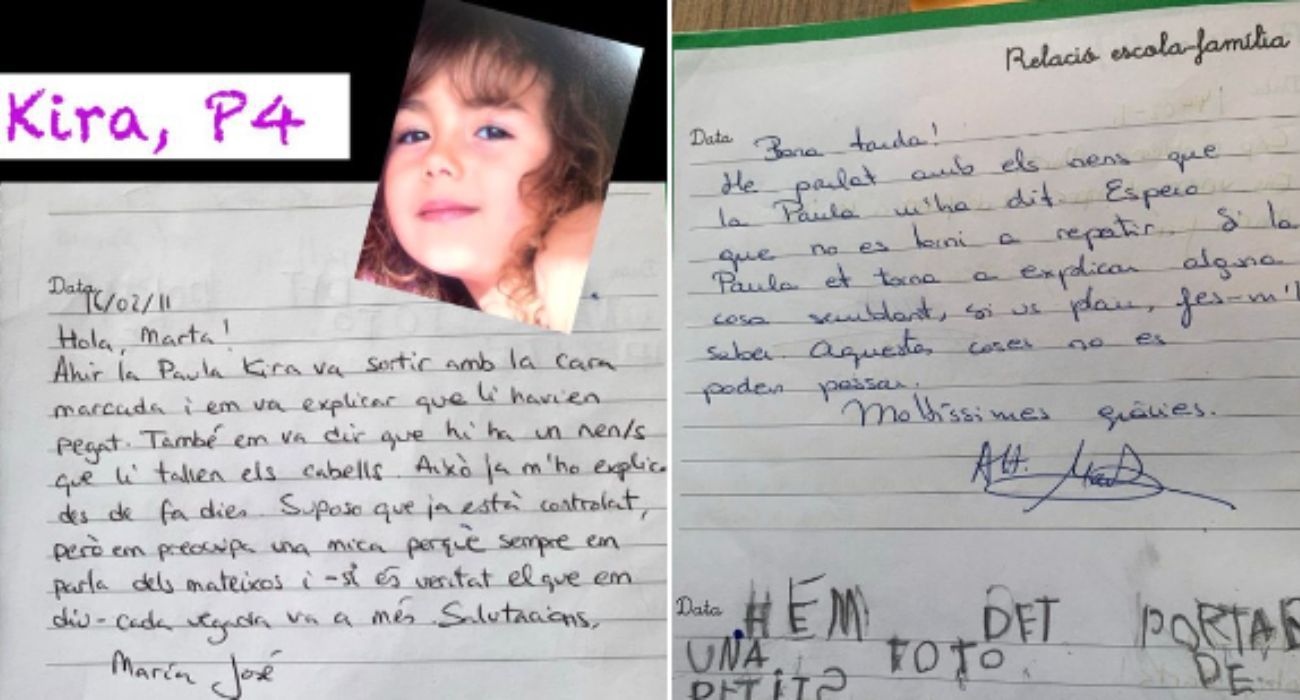 Kira, P4
Data
16/02/11
Hola, Marta!
Ahir la Paula Kira va sortir amb la cara
marcada i em va explicar que li havien
pegat. També em va dir que hi ha un nen/s
que li tallen els cabells. Això ja m'ho explica
des de fa dies. Suposo que ja està controlat,
però em preocupa una mica perquè sempre em
parla dels mateixos i -si és veritat el que em
diu- cada vegada va a més. Salutacions,
María José
Relació escola-família
Data
Bona tarda!
He parlat amb els nens que
la Paula m'ha dit. Espero
que no es torni a repetir. Si la
Paula et torna a explicar alguna
cosa semblant, si us plau, fes-m'l
saber. Aquestes coses no es
poden passar.
Moltíssimes gràcies.
Att.
Data
HEM DET PORTAR
UNA FOTO DE
PETITS